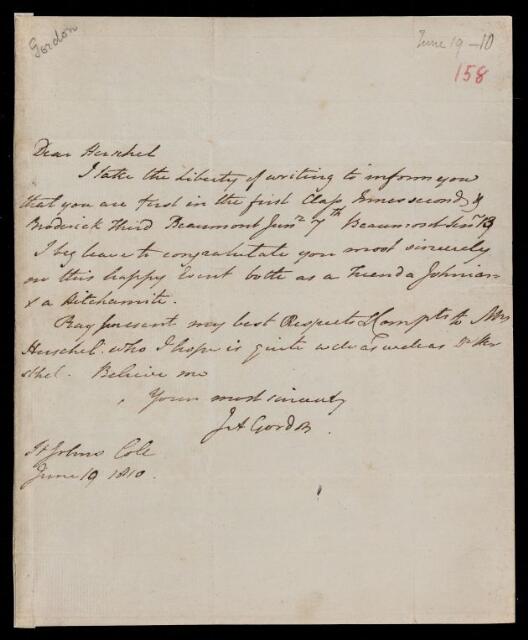 Gordon
June 19 - 10
158
Dear Herschel
I take the liberty of writing to inform you
that you are first in the first Class, Innes second, &
Broderick Third Beaumont Junr. 7th Beaumont Senr. 13
I beg leave to congratulate you most sincerely
on this happy Event both as a Friend a Johnian
& a Hitchamite.
Pray present my best Respects & Compts to Mrs
Herschel who I hope is quite well as well as Dr Her
schel. Believe me
Yours most sincerely
J A Gordon.
St Johns Coll
June 19 1810.